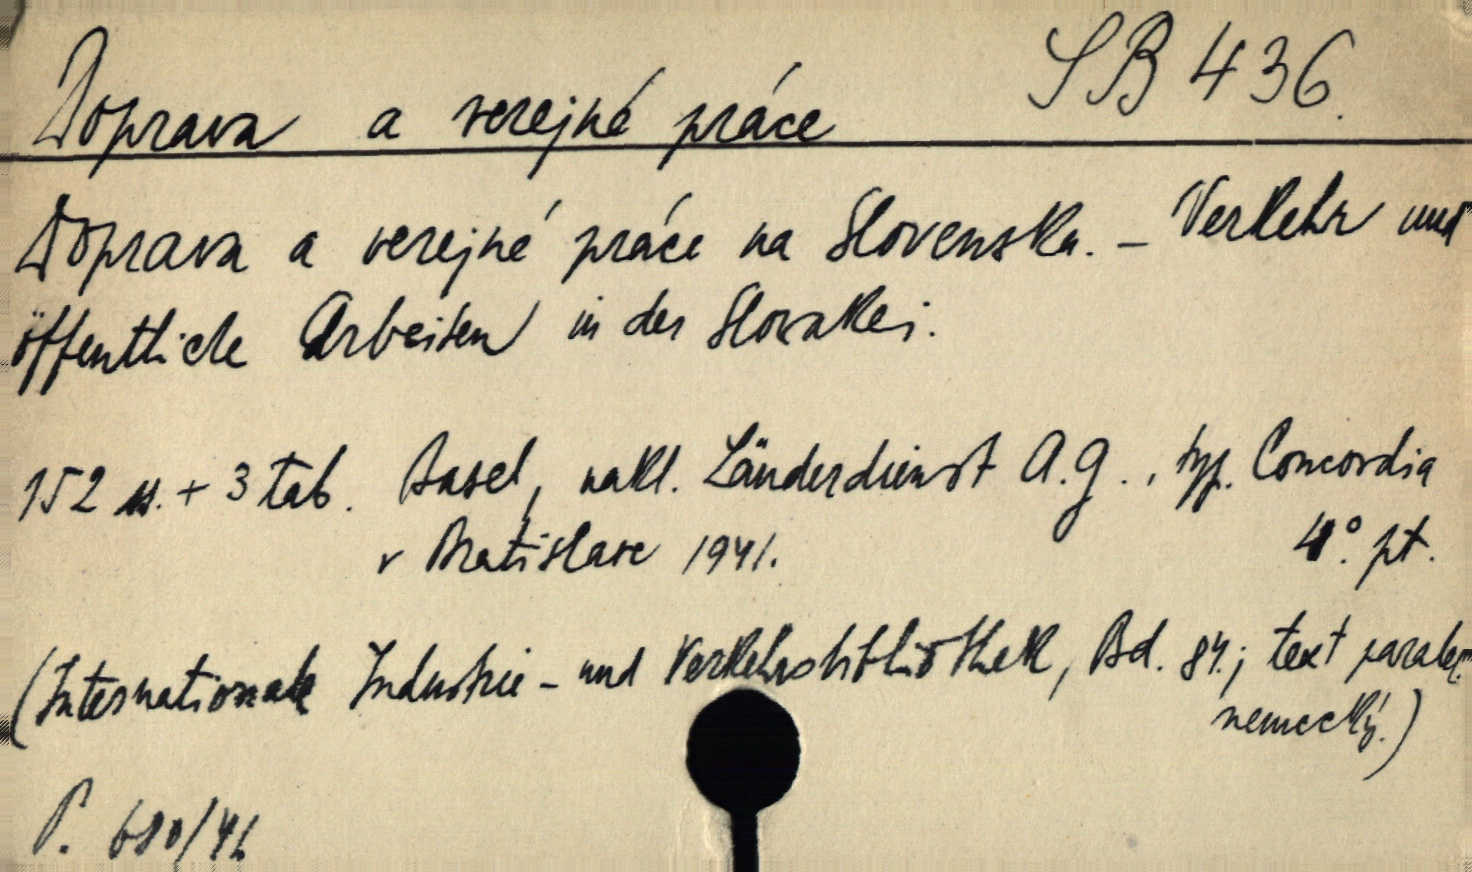 SB 436.
Doprava a verejné práce
Doprava a verejné práce na Slovensku. - Verkehr und
öffentliche Arbeiten in der Slovakei.
152 s. + 3 tab. Basel, nakl. Länderdienst A.G., typ. Concordia
v Bratislave 1941. 4°. pt.
(Internationale Industrie- und Verkehrsbibliothek, Bd. 84.; text paralel.
nemecký.)
P. 680/42